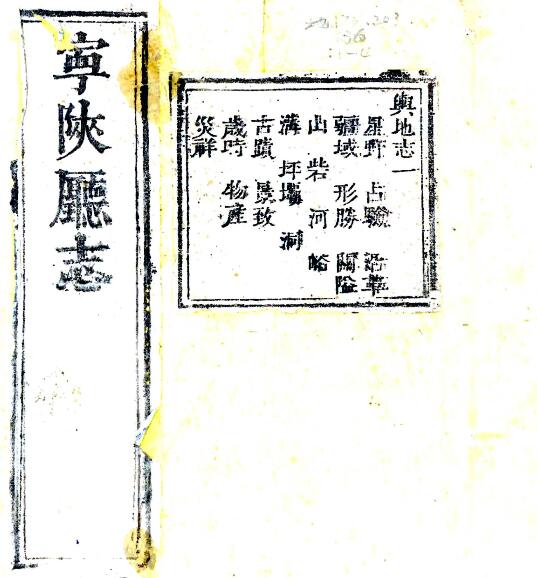 寧陝廳志
輿地志一
星野 占驗 沿革
疆域 形勝 關隘
山 砦 河 峪
溝 坪壩 洞
古蹟 景致
歲時 物產
災祥